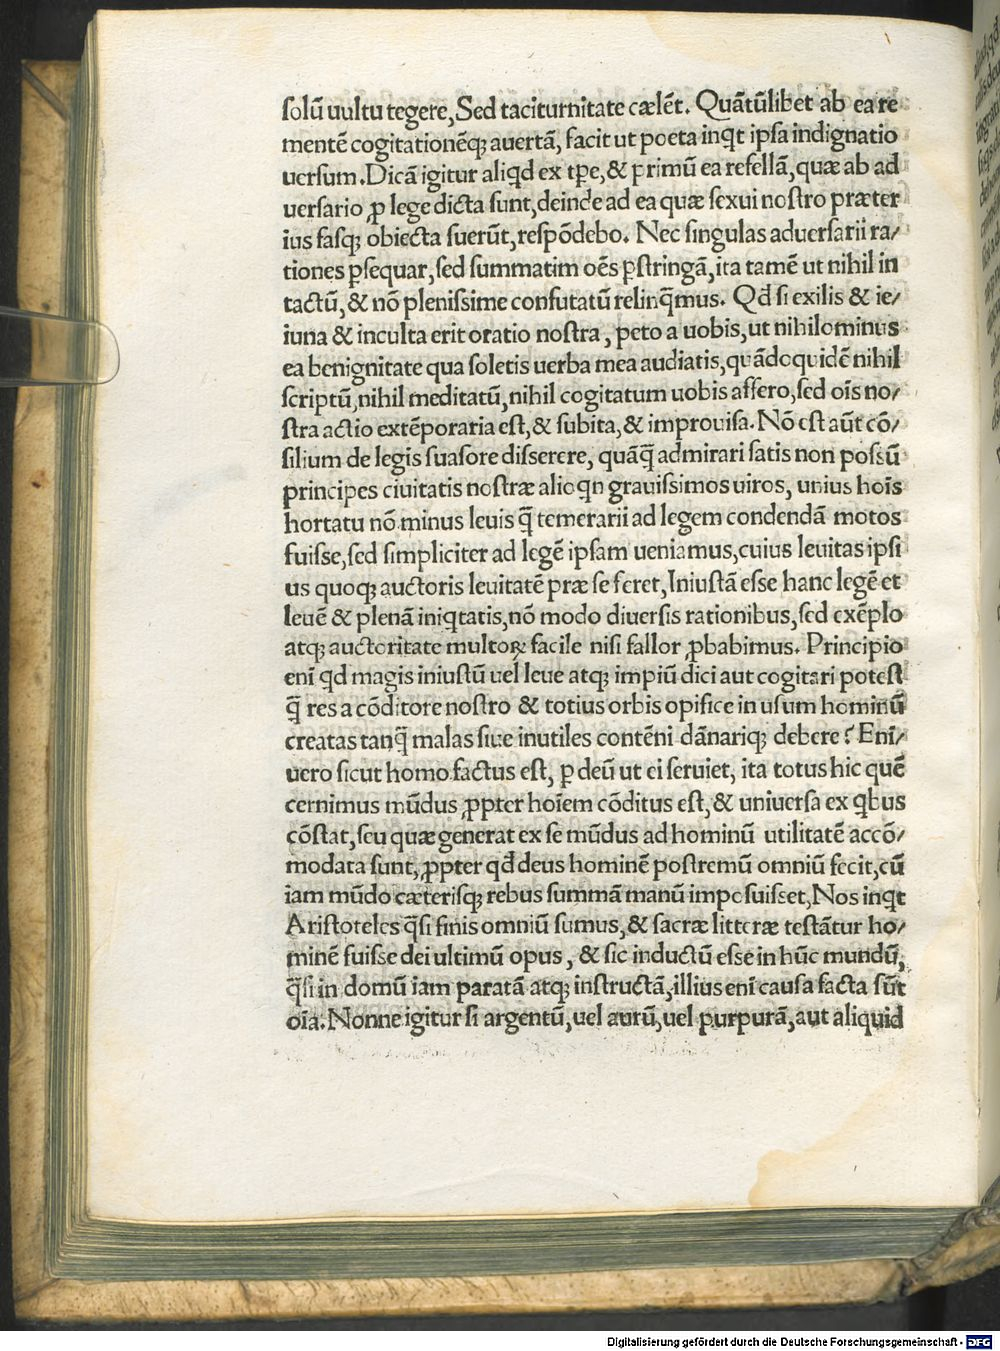 ſolū uultu tegere, Sed taciturnitate cælēt. Quātūlibet ab ea re
mentē cogitationēq; auertā, facit ut poeta inqt ipſa indignatio
uerſum. Dicā igitur aliqd ex tpe, & primū ea refellā, quæ ab ad
uerſario ꝓ lege dicta ſunt, deinde ad ea quæ ſexui noſtro præter
ius faſq; obiecta fuerūt, reſpōdebo. Nec ſingulas aduerſarii ra/
tiones pſequar, ſed ſummatim oēs pſtringā, ita tamē ut nihil in
tactū, & nō pleniſſime confutatū relinq̄mus. Qd ſi exilis & ie/
iuna & inculta erit oratio noſtra, peto a uobis, ut nihilominus
ea benignitate qua ſoletis uerba mea audiatis, quādoquidē nihil
ſcriptū, nihil meditatū, nihil cogitatum uobis affero, ſed oīs no/
ſtra actio extēporaria eſt, & ſubita, & improuiſa. Nō eſt aūt cō/
ſilium de legis ſuaſore diſſerere, quāq̄ admirari ſatis non poſſū
principes ciuitatis noſtræ alioqn grauiſſimos uiros, unius hoīs
hortatu nō minus leuis q̄ temerarii ad legem condendā motos
fuiſſe, ſed ſimpliciter ad legē ipſam ueniamus, cuius leuitas ipſi
us quoq; auctoris leuitatē præ ſe feret, Iniuſtā eſſe hanc legē et
leuē & plenā iniqtatis, nō modo diuerſis rationibus, ſed exēplo
atq; auctoritate multoꝝ facile niſi fallor ꝓbabimus. Principio
enī qd magis iniuſtū uel leue atq; impiū dici aut cogitari poteſt
q̄ res a cōditore noſtro & totius orbis opifice in uſum hominū
creatas tanq̄ malas ſiue inutiles contēni dānariq; debere? Enī/
uero ſicut homo factus eſt, ꝑ deū ut ei ſeruiet, ita totus hic quē
cernimus mūdus ꝓpter hoīem cōditus eſt, & uniuerſa ex qbus
cōſtat, ſeu quæ generat ex ſe mūdus ad hominū utilitatē accō/
modata ſunt, ꝓpter qd deus hominē poſtremū omniū fecit, cū
iam mūdo cæteriſq; rebus ſummā manū impoſuiſſet, Nos inqt
Ariſtoteles q̄ſi finis omniū ſumus, & ſacræ litteræ teſtātur ho/
minē fuiſſe dei ultimū opus, & ſic inductū eſſe in hūc mundū,
q̄ſi in domū iam paratā atq; inſtructā, illius enī cauſa facta ſūt
oīa. Nonne igitur ſi argentū, uel aurū, uel purpurā, aut aliquid
Digitalisierung gefördert durch die Deutsche Forschungsgemeinschaft - DFG